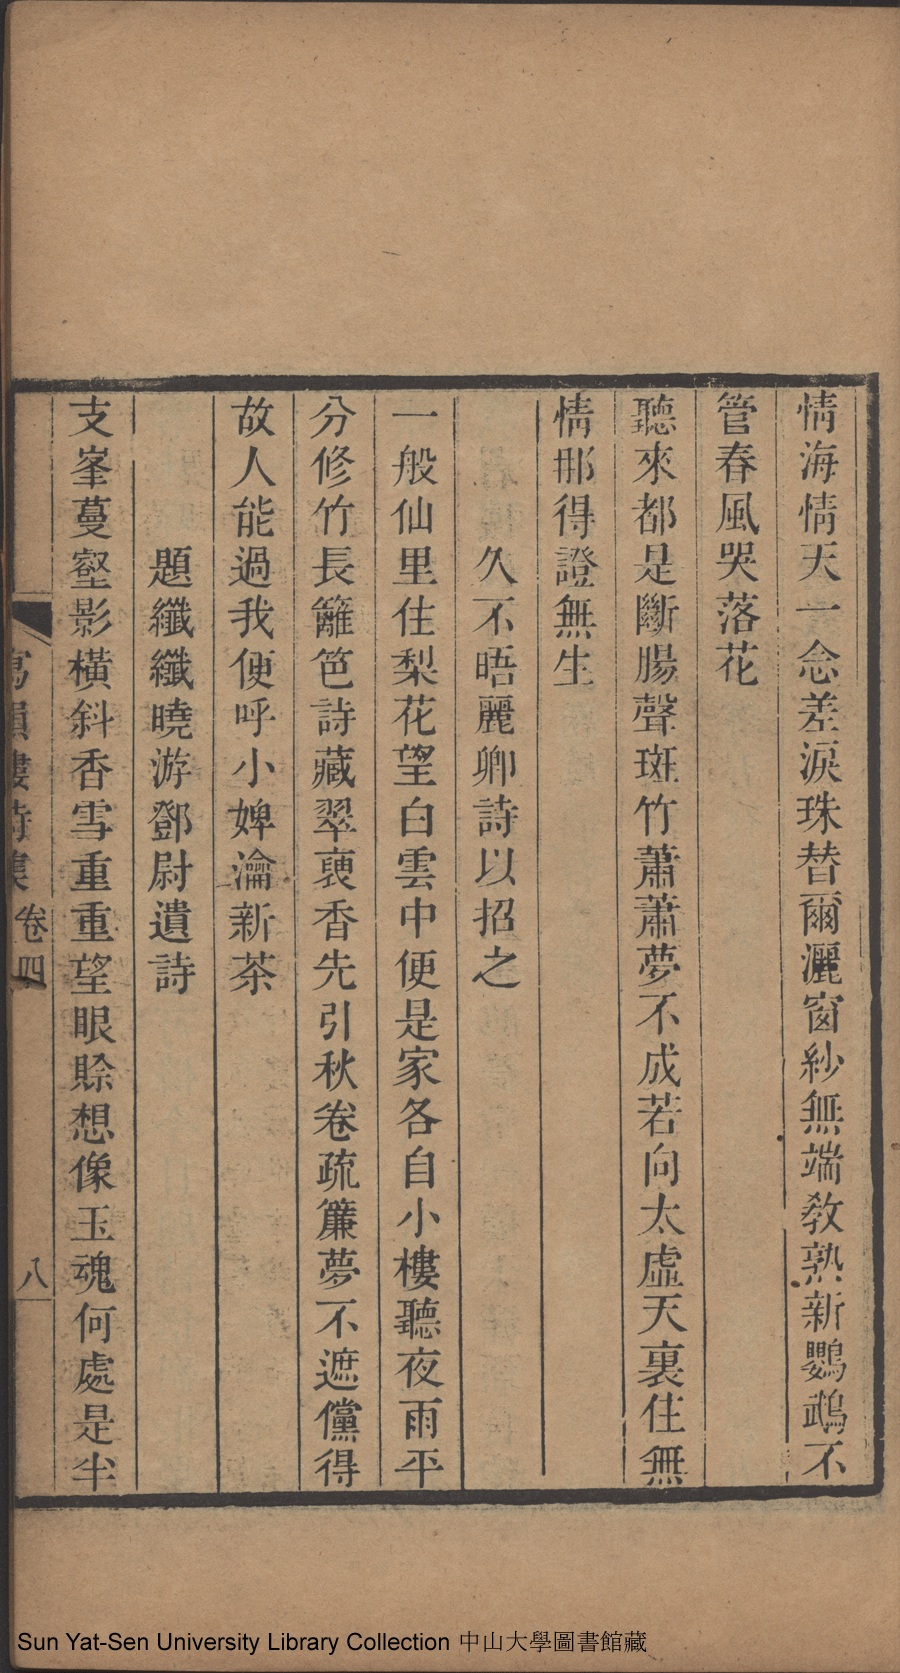 情海情天一念差淚珠替爾灑窗紗無端教熟新鸚鵡不
管春風哭落花
聽來都是斷腸聲斑竹蕭蕭夢不成若向太虛天裏住無
情那得證無生
久不晤麗卿詩以招之
一般仙里住梨花望白雲中便是家各自小樓聽夜雨平
分修竹長籬笆詩藏翠褎香先引秋卷疏簾夢不遮儻得
故人能過我便呼小婢瀹新茶
題纖纖曉游鄧尉遺詩
支峯蔓壑影橫斜香雪重重望眼賒想像玉魂何處是半
寫韻樓詩集卷四
八
Sun Yat-Sen University Library Collection 中山大學圖書館藏